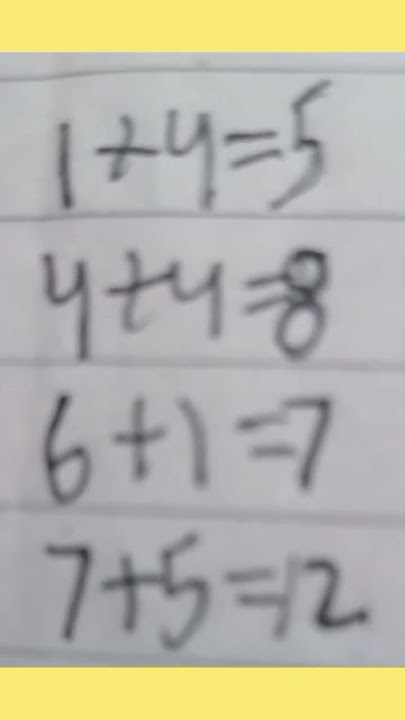 1+4=5
4+4=8
6+1=7
7+5=12